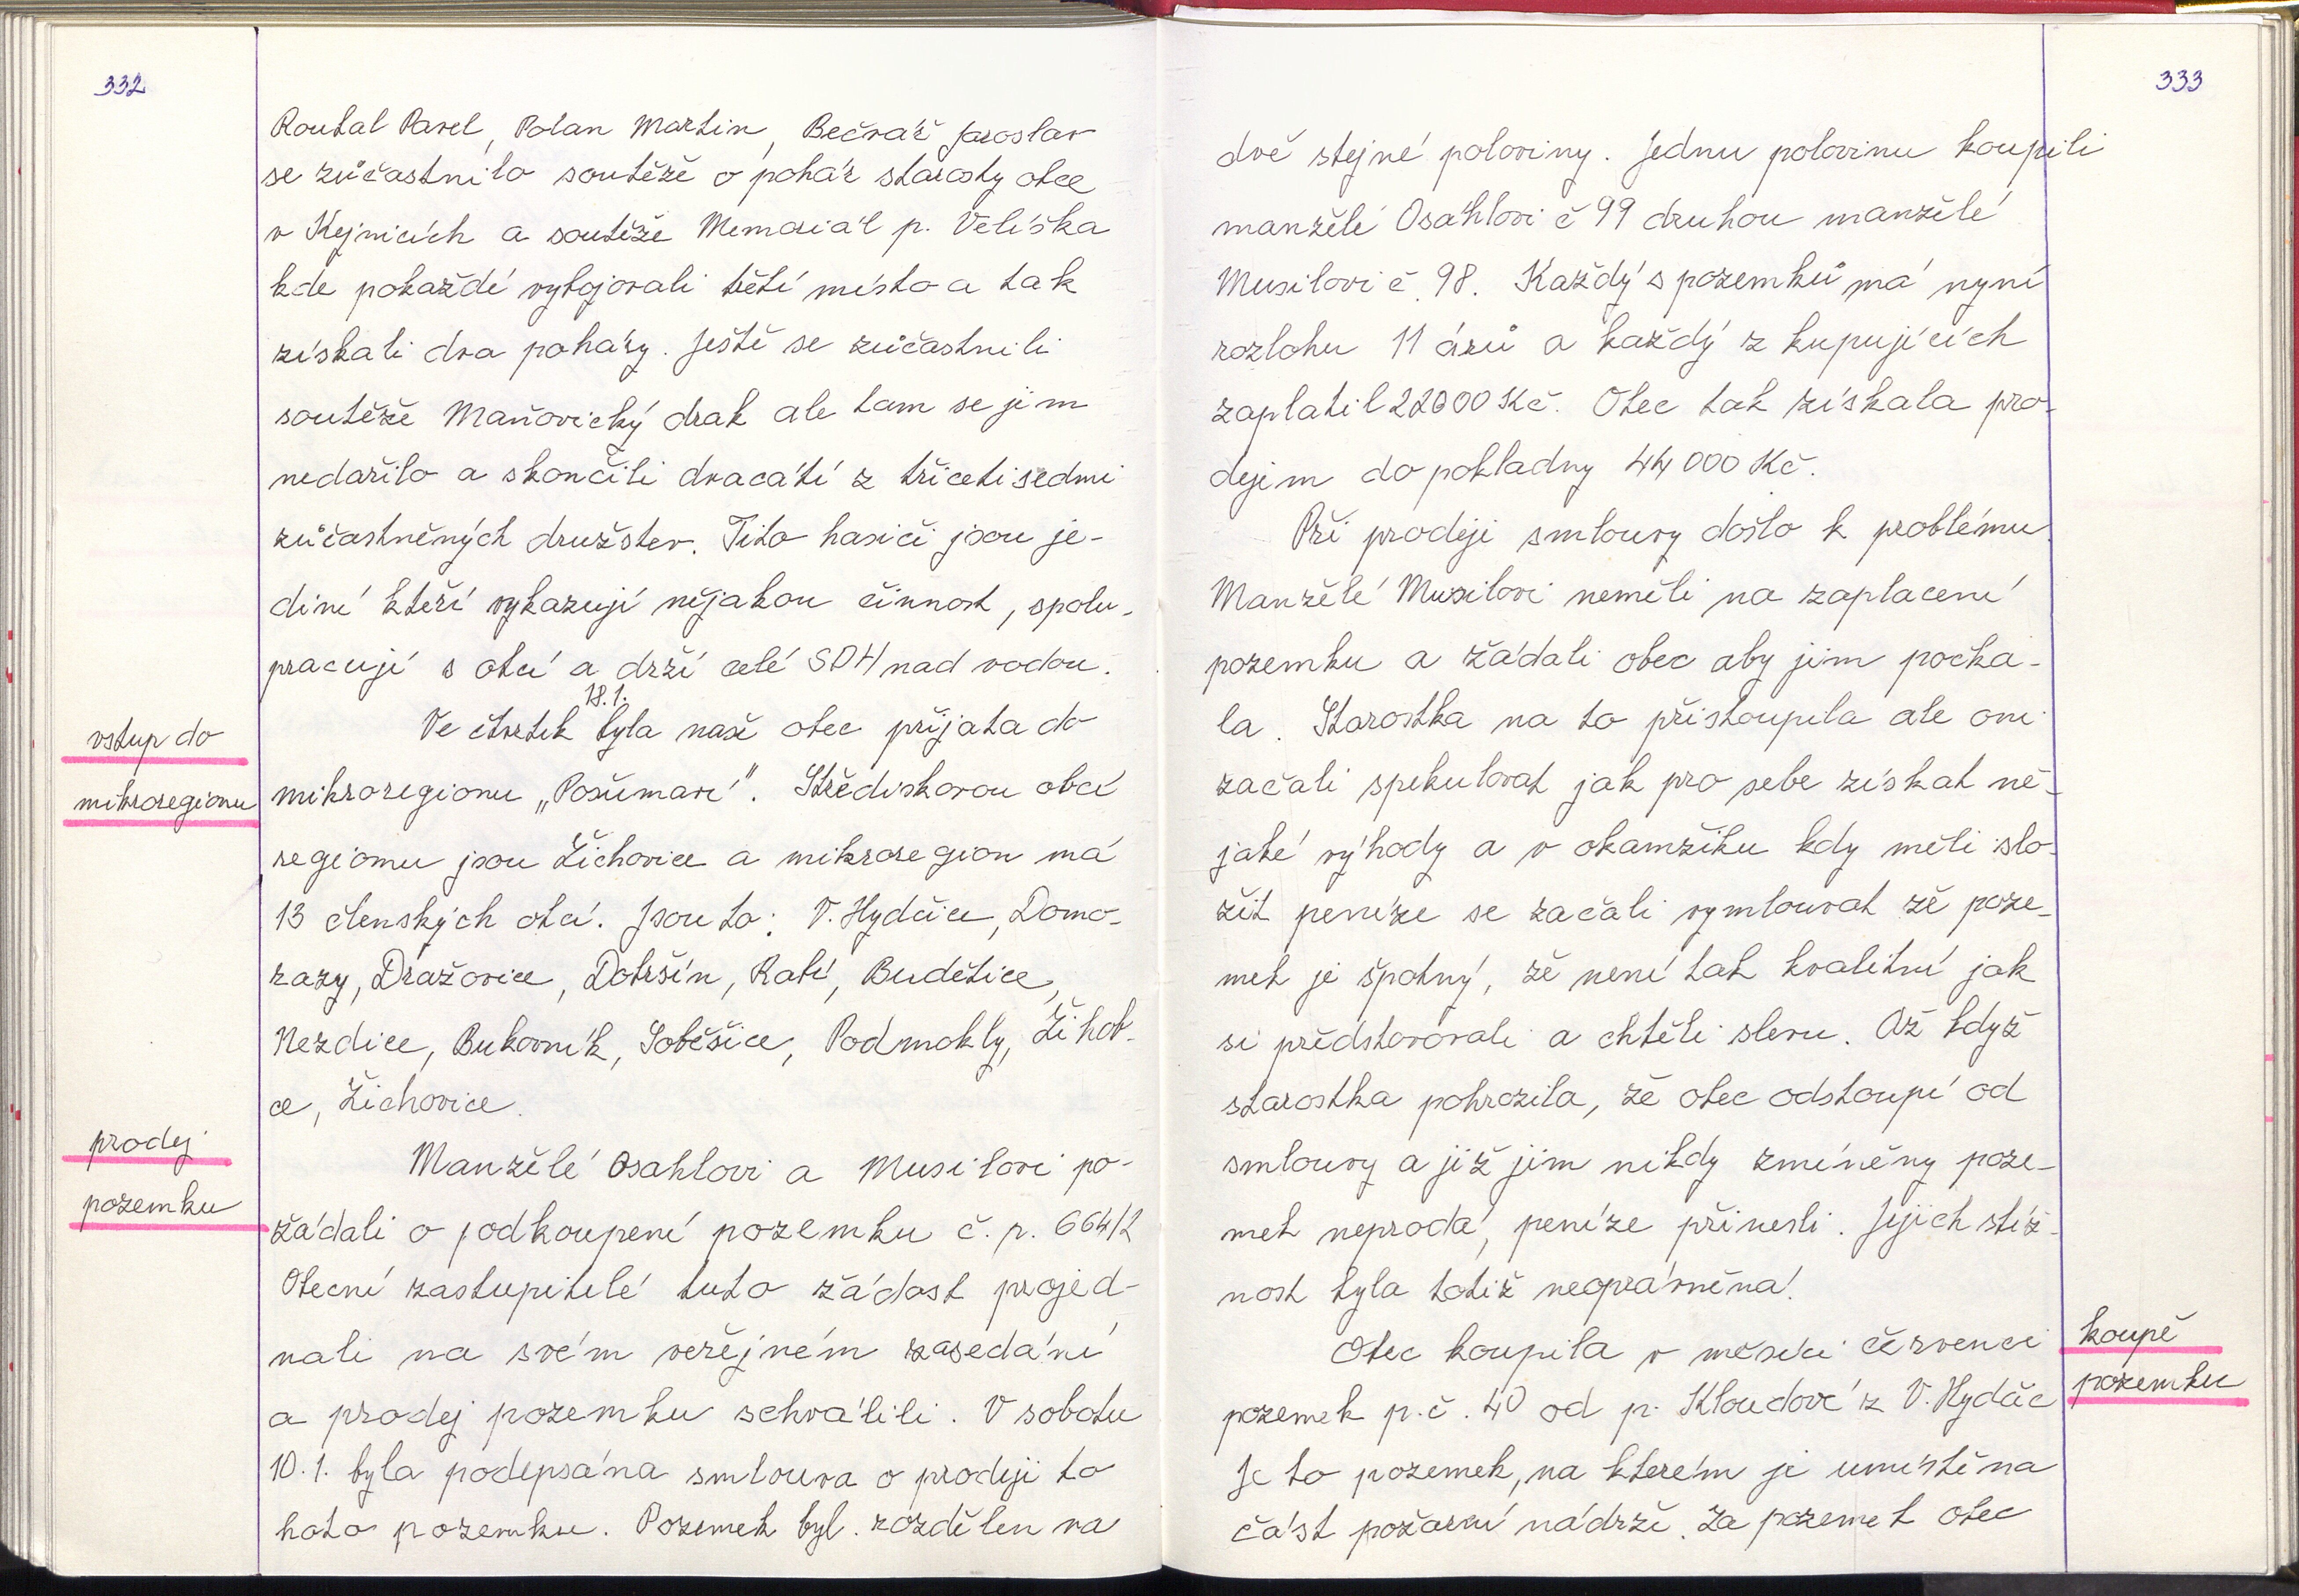 332
Routal Pavel, Polan Martin, Bečvář Jaroslav
se zůčastnilo soutěže o pohár starosty obce
v Kejnicích a soutěže Memoriál p. Velíška
kde pokaždé vybojovali třetí místo a tak
získali dva poháry. Ještě se zůčastnili
soutěže Maňovický drak ale tam se jim
nedařilo a skončili dvacátí z třicetisedmi
zůčastněných družstev. Tito hasiči jsou je-
diní kteří vykazují nějakou činnost, spolu-
pracují s obcí a drží celé SDH nad vodou.
vstup do
mikroregionu
18.1.
Ve čtvrtek byla naše obec přijata do
mikroregionu „Pošumaví". Střediskovou obcí
regionu jsou Žichovice a mikroregion má
13 členských obcí. Jsou to: V. Hydčice, Domo-
razy, Dražovice, Dobršín, Rabí, Budětice,
Nezdice, Bukovník, Soběšice, Podmokly, Žihob-
ce, Žichovice.
prodej
pozemku
Manželé Osahlovi a Musilovi po-
žádali o podkoupení pozemku č. p. 664/2
Obecní zastupitelé tuto žádost projed-
nali na svém veřejném zasedání
a prodej pozemku schválili. V sobotu
10.1. byla podepsána smlouva o prodeji to
hoto pozemku. Pozemek byl rozdělen na
333
dvě stejné poloviny. Jednu polovinu koupili
manželé Osáhlovi č 99 druhou manželé
Musilovi č. 98. Každý s pozemků má nyní
rozlohu 11 árů a každý z kupujících
zaplatil 22000 Kč. Obec tak získala pro-
dejem do pokladny 44 000 Kč.
Při prodeji smlouvy došlo k problému.
Manželé Musilovi neměli na zaplacení
pozemku a žádali obec aby jim počka-
la. Starostka na to přistoupila ale oni
začali spekulovat jak pro sebe získat ně-
jaké výhody a v okamžiku kdy měli slo-
žit peníze se začali vymlouvat že poze-
mek je špatný, že není tak kvalitní jak
si představovali a chtěli slevu. Až když
starostka pohrozila, že obec odstoupí od
smlouvy a již jim nikdy zmíněny poze-
mek neprodá, peníze přinesli. Jejich stíž-
nost byla totiž neoprávněná!
koupě
pozemku
Obec koupila v měsíci červenci
pozemek p.č. 40 od p. Kloudové z V. Hydčic
Je to pozemek, na kterém je umístěna
část požární nádrže. Za pozemek obec